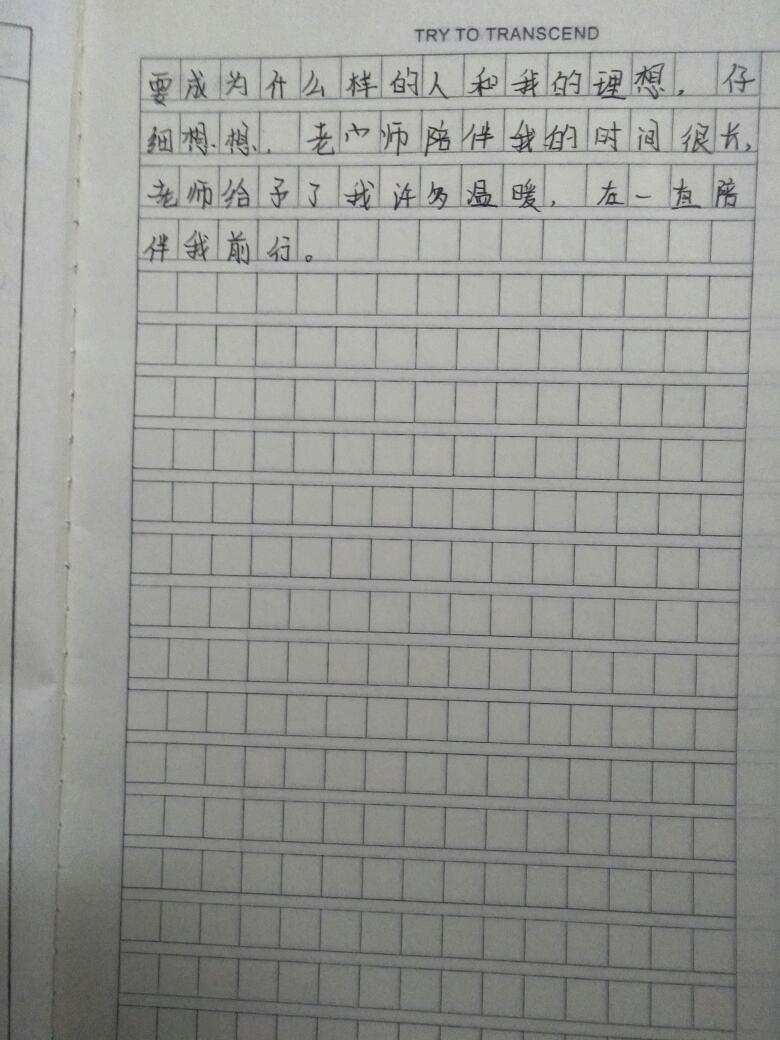 TRY TO TRANSCEND
要成为什么样的人和我的理想，仔
细想想，老小师陪伴我的时间很长，
老师给予了我许多温暖，在一直陪
伴我前行。